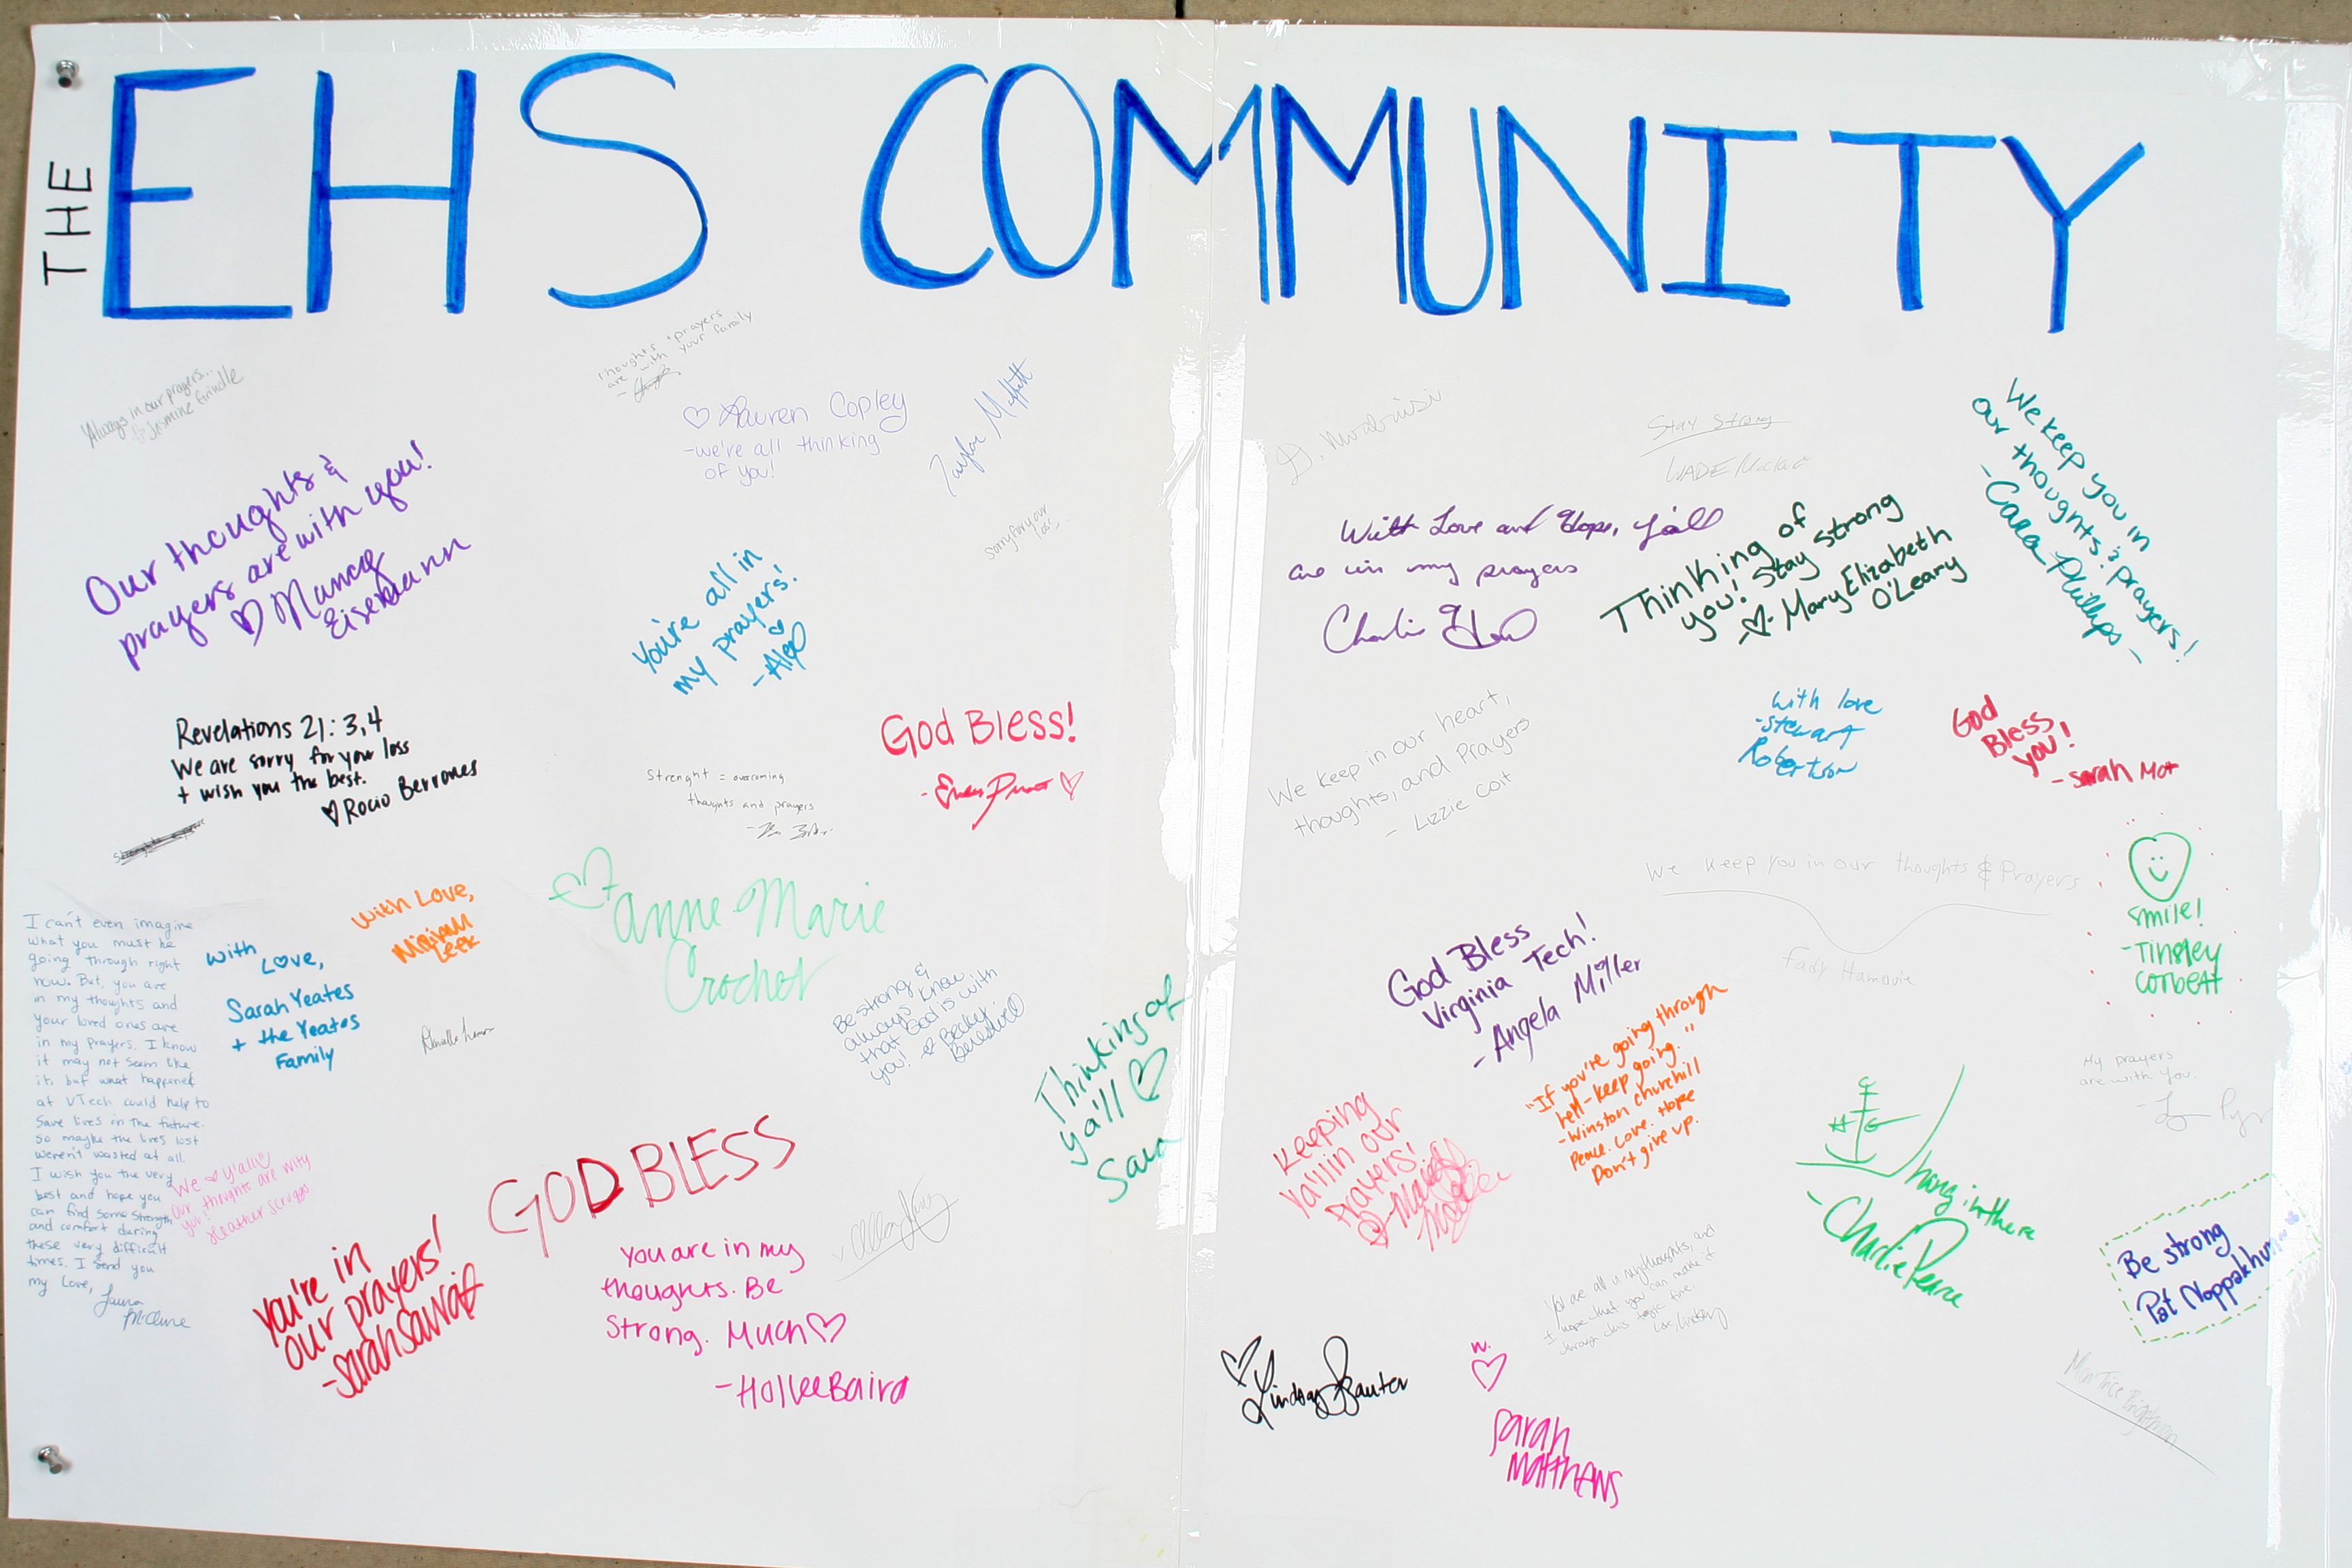 THE
EHS COMMUNITY
Always in our prayers...
Jasmine
Thoughts + prayers
are with your family
♡ Lauren Copley
-we're all thinking
of you!
Taylor Moffett
Our thoughts &
prayers are with you!
♡ Nancy
Eisenmann
sorry for your
loss...
You're all in
my prayers!
-Alex
Revelations 21: 3,4
We are sorry for your loss
+ wish you the best.
♡ Rocio Berrones
God Bless!
♡
Strenght = overcoming
thoughts and prayers
With Love,
Miriam
Leek
With
Love,
Sarah Yeates
+ the Yeates
Family
Anne Marie
Crochet
Be strong &
always know
that God is with
you! Becky
I can't even imagine
what you must be
going through right
now. But, you are
in my thoughts and
your loved ones are
in my prayers. I know
it may not seem like
it, but what happened
at VTech could help to
save lives in the future.
so maybe the lives lost
weren't wasted at all
I wish you the very
best and hope you
can find some strength
and comfort during
these very difficult
times. I send you
my Love, Laura
McClure
We ♡ y'all
our thoughts are with
you!
Heather Scruggs
You're in
our prayers!
-Sarah Savage
GOD BLESS
You are in my
thoughts. Be
Strong. Much ♡
-Hollee Baird
Thinking of
ya'll ♡
Sam
Stay Strong
WADE
We keep you in
our thoughts & prayers!
-Cara Phillips-
With Love and Hope, y'all
are in my prayers
Charlie
Thinking of
you! Stay Strong
-♡- Mary Elizabeth
O'Leary
We keep in our heart,
thoughts, and Prayers
- Lizzie Coit
with love
-Stewart
Robertson
God
Bless
you!
-Sarah Mot
We keep you in our thoughts & Prayers
Fady Hamavie
smile!
-Tinsley
Corbett
God Bless
Virginia Tech!
-Angela Miller
"If you're going through
hell-keep going."
-Winston Churchill
Peace. Love. Hope
Don't give up.
Keeping
Ya'll in our
Prayers!
My prayers
are with you.
hang in there
-Charlie Pearce
Be strong
Pat
You are all in my thoughts, and
I hope that you can make it
through this tragic time.
Love, Lindsay
♡ Lindsay Sauter
W.
♡
Sarah
Matthews